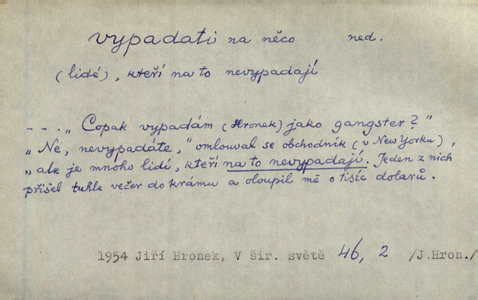 vypadati na něco ned.
(lidé), kteří na to nevypadají
--. „Copak vypadám (Hronek) jako gangster?"
„Ne, nevypadáte," omlouval se obchodník (v New Yorku),
„ale je mnoho lidí, kteří na to nevypadají. Jeden z nich
přišel tuhle večer do krámu a oloupil mě o tisíc dolarů.
1954 Jiří Hronek, V šir. světě 46, 2 /J.Hron./